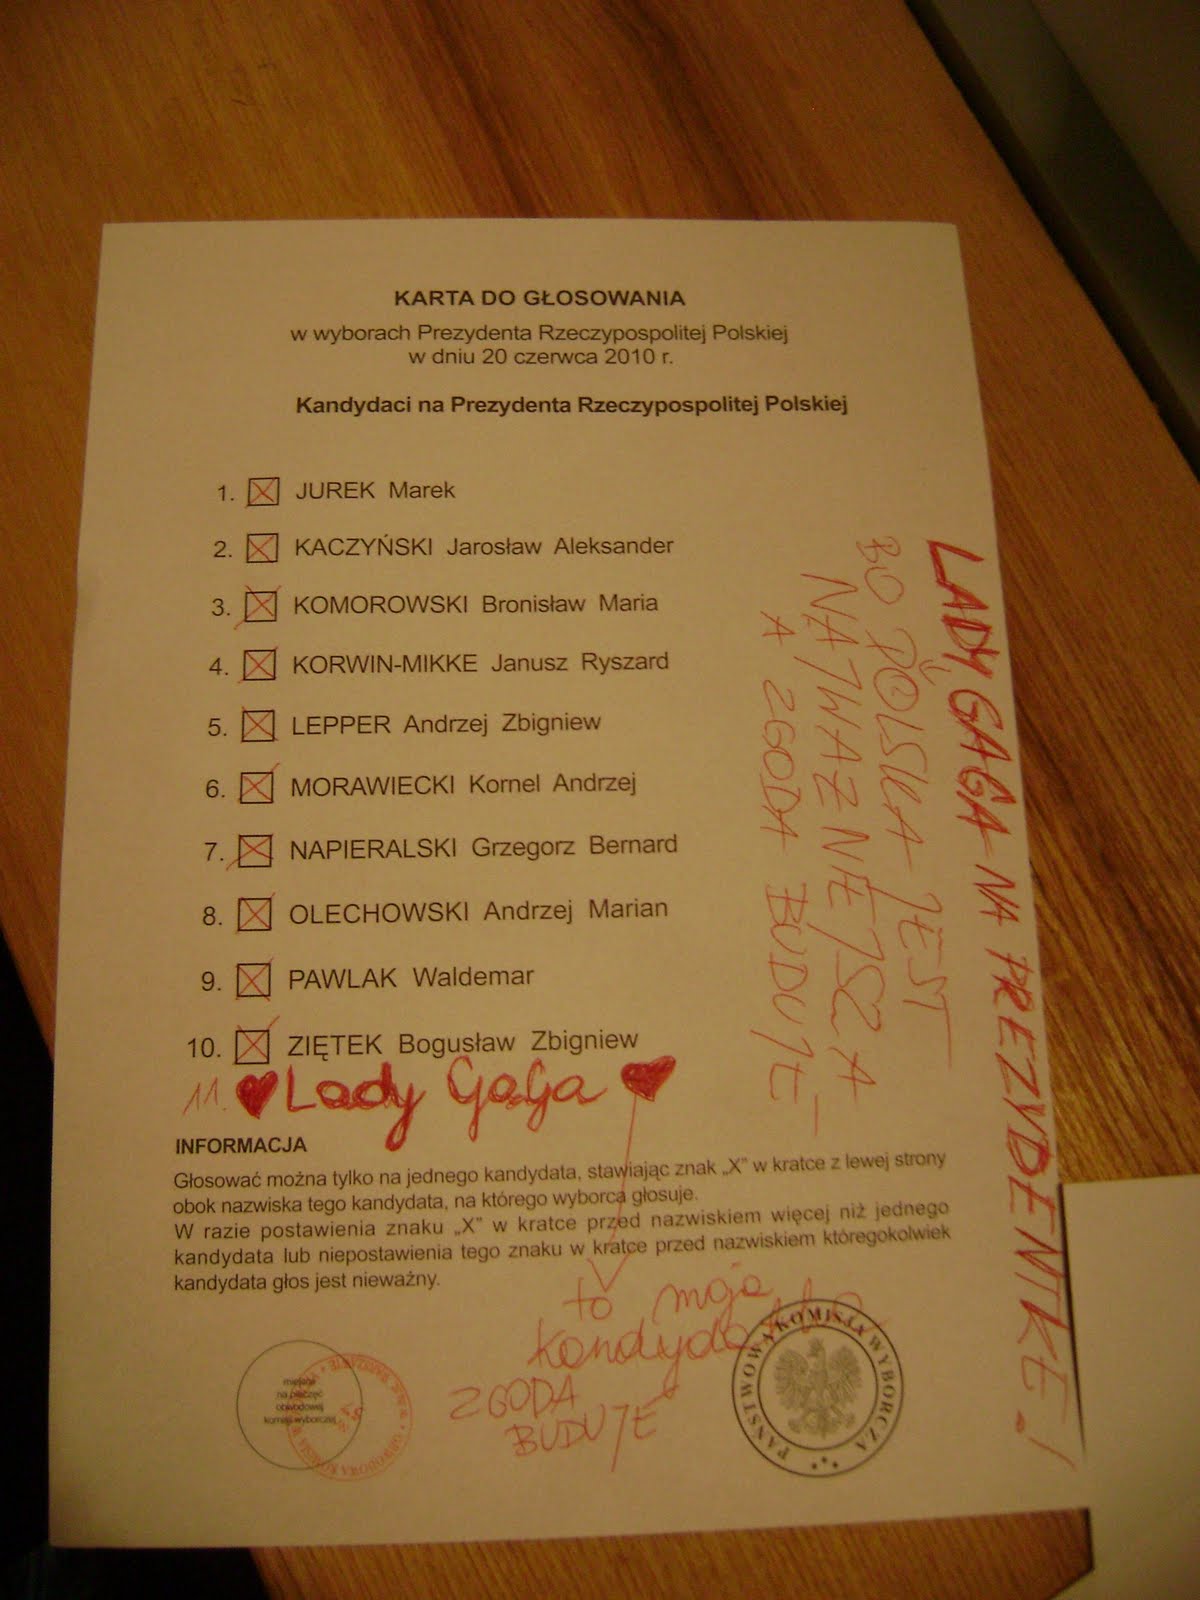 KARTA DO GŁOSOWANIA
w wyborach Prezydenta Rzeczypospolitej Polskiej
w dniu 20 czerwca 2010 r.
Kandydaci na Prezydenta Rzeczypospolitej Polskiej
1. JUREK Marek
2. KACZYŃSKI Jarosław Aleksander
3. KOMOROWSKI Bronisław Maria
4. KORWIN-MIKKE Janusz Ryszard
5. LEPPER Andrzej Zbigniew
6. MORAWIECKI Kornel Andrzej
7. NAPIERALSKI Grzegorz Bernard
8. OLECHOWSKI Andrzej Marian
9. PAWLAK Waldemar
10. ZIĘTEK Bogusław Zbigniew
11. ♥ Lady GaGa ♥
LADY GAGA NA PREZYDENTKE!
BO POLSKA JEST
NAJWAZNIEJSZA
A ZGODA BUDUJE
INFORMACJA
Głosować można tylko na jednego kandydata, stawiając znak „X” w kratce z lewej strony
obok nazwiska tego kandydata, na którego wyborca głosuje.
W razie postawienia znaku „X” w kratce przed nazwiskiem więcej niż jednego
kandydata lub niepostawienia tego znaku w kratce przed nazwiskiem któregokolwiek
kandydata głos jest nieważny.
to moja
kandydatka
ZGODA
BUDUJE
miejsce
na pieczęć
obwodowej
komisji wyborczej
PAŃSTWOWA KOMISJA WYBORCZA